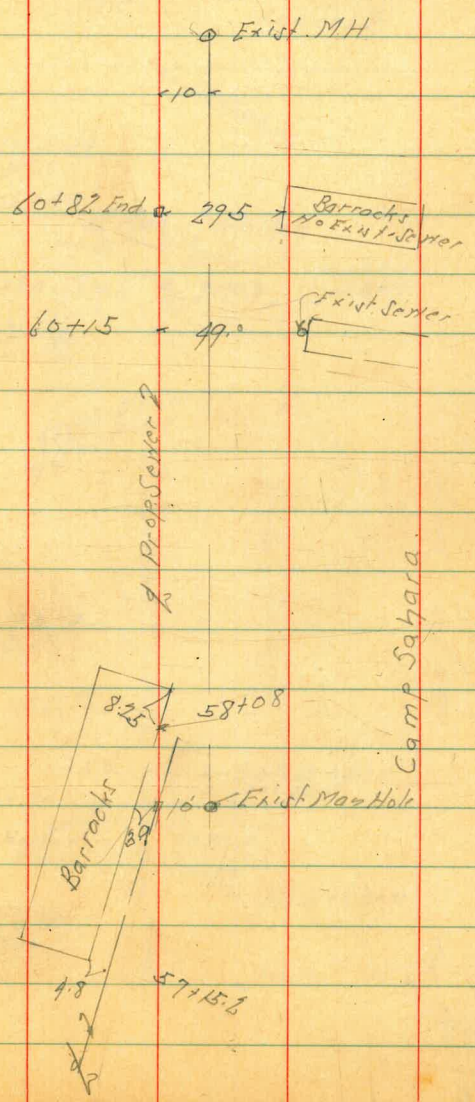 Exist. M H
10
60+82 End
295
Barracks
No Exist. Sewer
Exist Sewer
60+15
49.0
Prop. Sewer
Camp Sahara
8.25
58+08
Barracks
10
Exist Man Hole
3.9
4.8
57+15.2